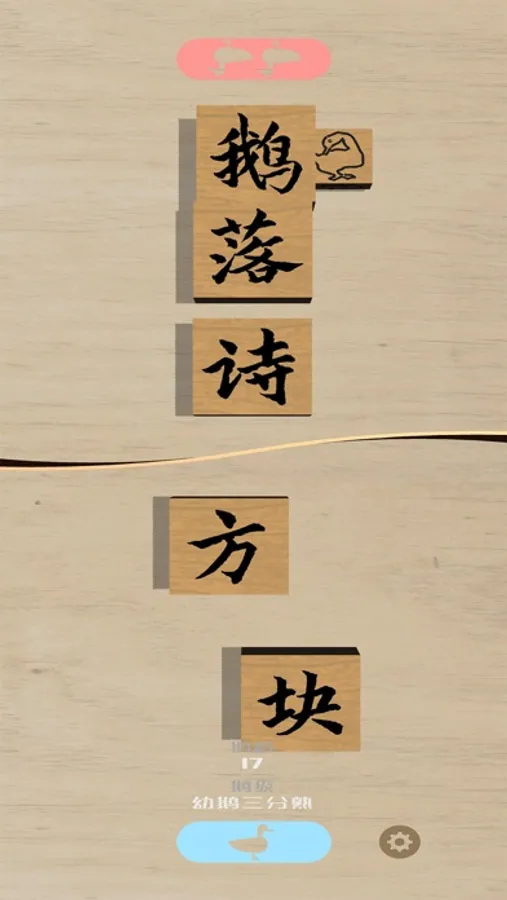 鹅
落
诗
方
块
17
鹅级
幼鹅三分熟